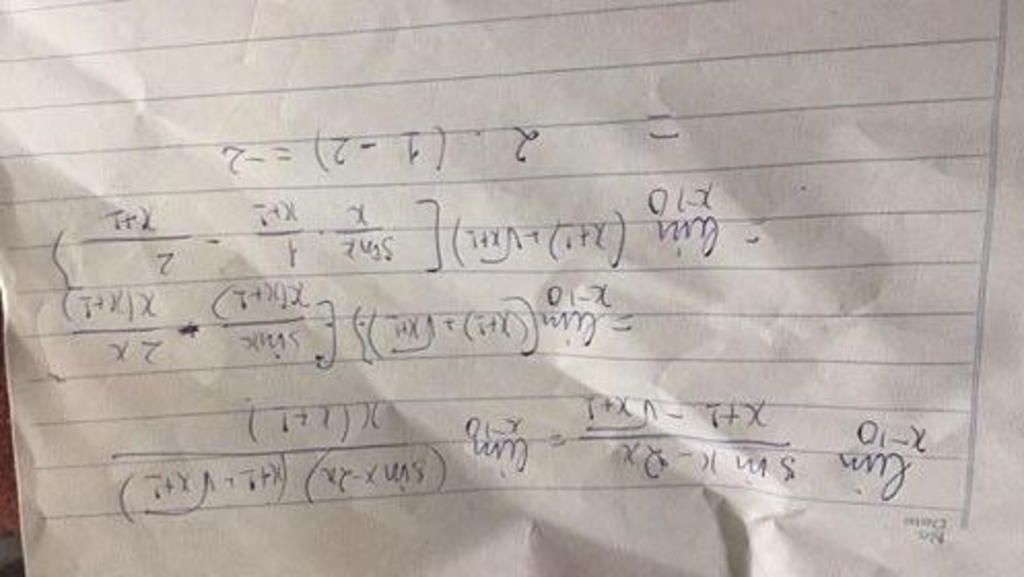 No
Date
lim x→0 (sin x - 2x)/(x+1 - √(x+1)) = lim x→0 (sin x - 2x)(x+1 + √(x+1))/(x(x+1))
= lim x→0 ((x+1) + √(x+1)) [sin x/(x(x+1)) - 2x/(x(x+1))]
= lim x→0 ((x+1) + √(x+1)) [sin x/x · 1/(x+1) - 2/(x+1)]
= 2 · (1 - 2) = -2